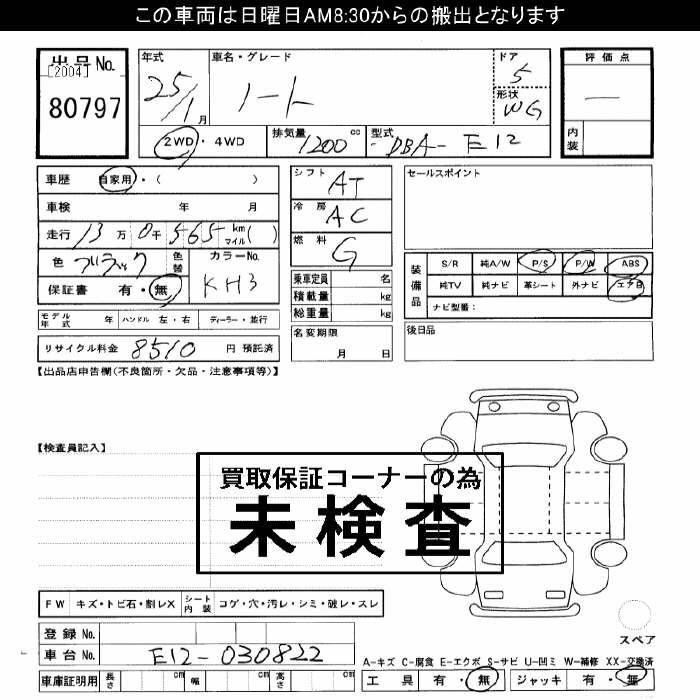 この車両は日曜日AM8:30からの搬出となります
出品No.
[2004]
80797
年式
25/1月
車名・グレード
ノート
ドア
5
形状
WG
評価点
—
内装
2WD・4WD
排気量
1200cc
型式
DBA-E12
車歴 自家用・( )
車検 年 月
走行 13万0千565 km マイル( )
色 ブラック 色替
カラーNo.
KH3
保証書 有・無
シフト AT
冷房 AC
燃料 G
乗車定員 名
積載量 kg
総重量 kg
名変期限
月 日
セールスポイント
装備品
S/R 純A/W P/S P/W ABS
純TV 純ナビ 革シート 外ナビ エアB
ナビ型番：
後日品
モデル年式 年 ハンドル 左・右 ディーラー・並行
リサイクル料金 8510 円 預託済
【出品店申告欄(不良箇所・欠品・注意事項等)】
【検査員記入】
買取保証コーナーの為
未検査
FW キズ・トビ石・割レX シート内装 コゲ・穴・汚レ・シミ・破レ・スレ
登録No.
車台No. E12-030822
車庫証明用 長さ cm 幅 cm 高さ cm
スペア
A-キズ C-腐食 E-エクボ S-サビ U-凹ミ W-補修 XX-交換済
工具 有・無 ジャッキ 有・無